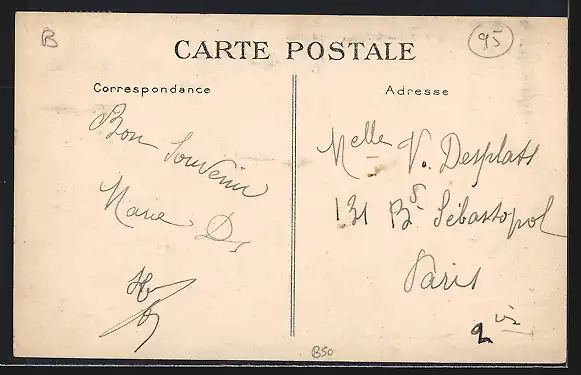 B
95
CARTE POSTALE
Correspondance
Adresse
Bon Souvenir
Marie D
Melle V. Desplats
131 Bd Sébastopol
Paris
B50